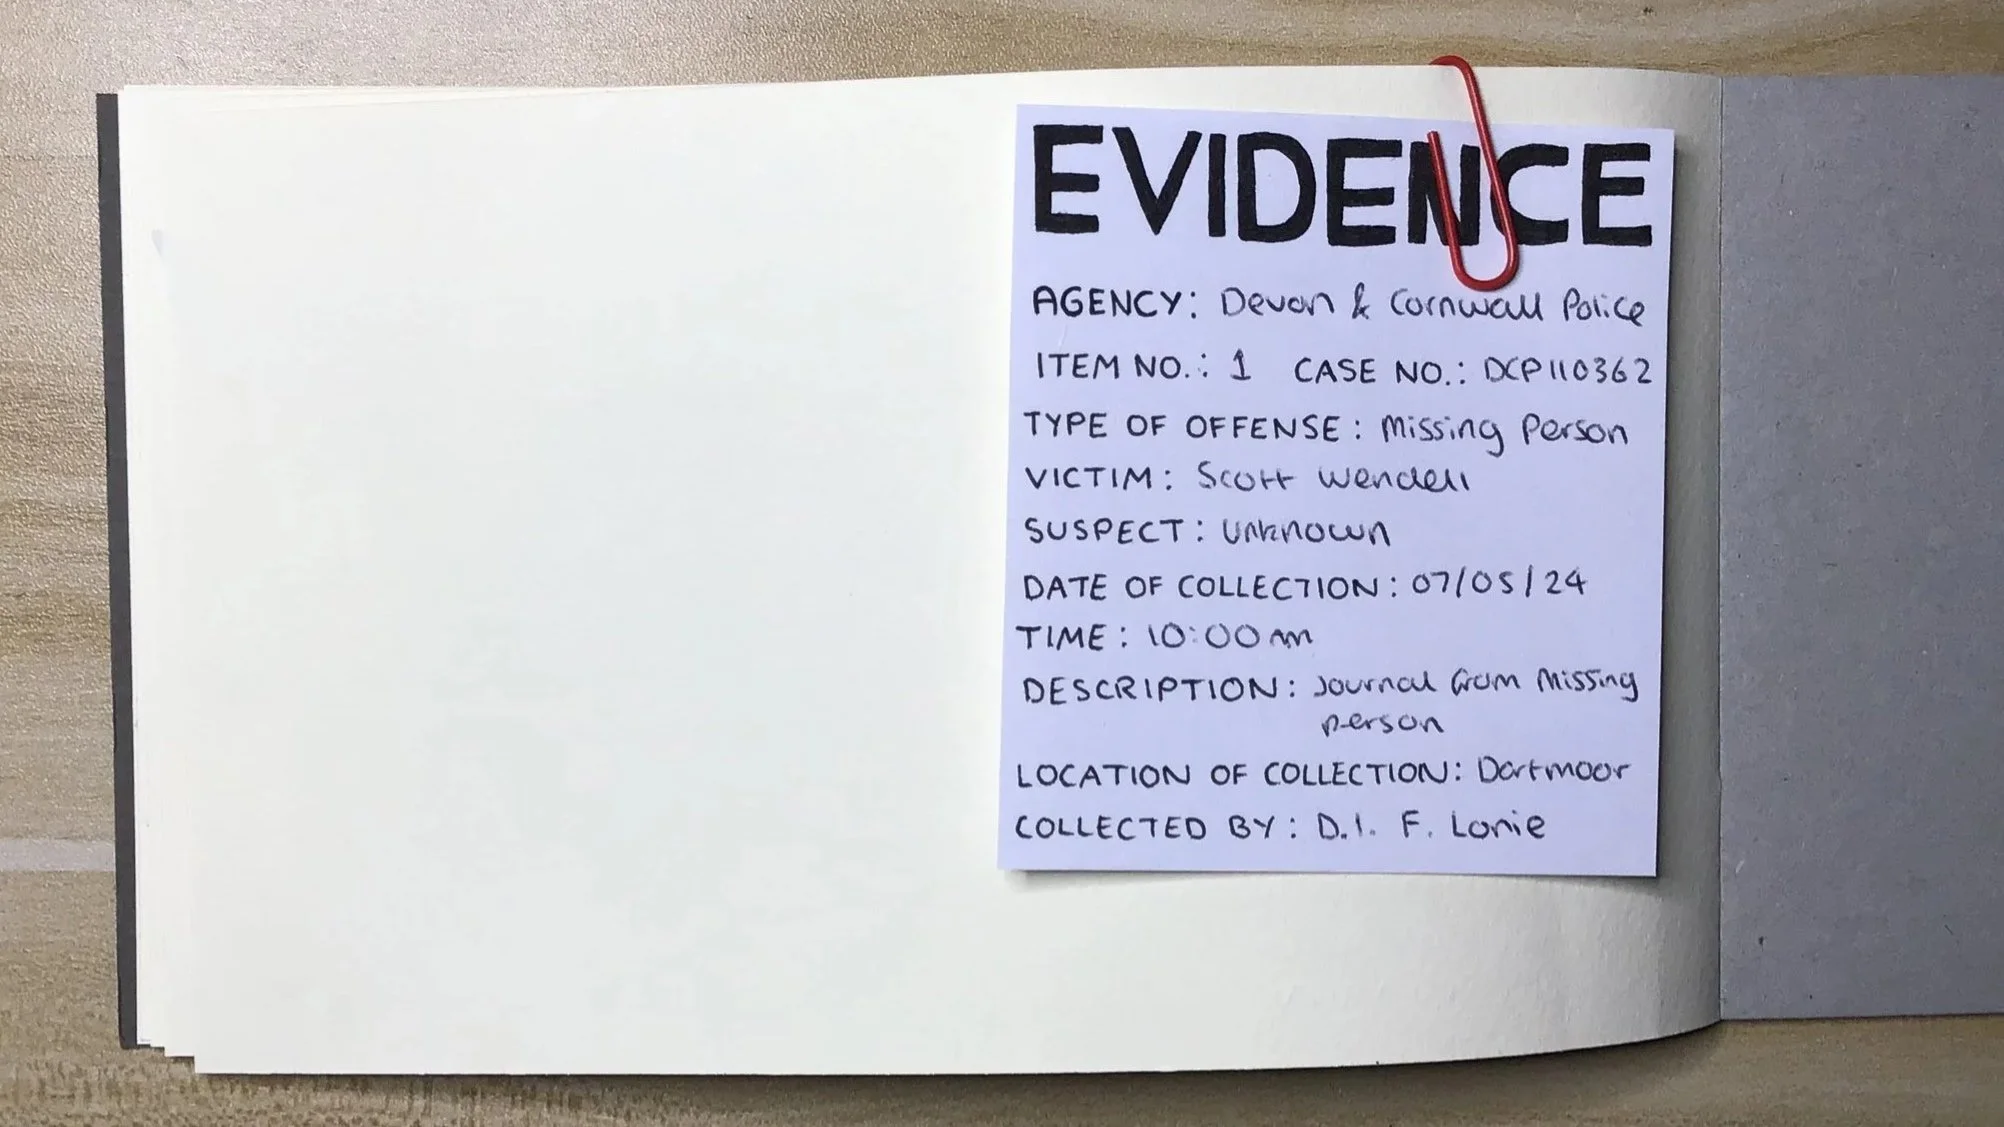 EVIDENCE
AGENCY: Devon & Cornwall Police
ITEM NO.: 1 CASE NO.: DCP110362
TYPE OF OFFENSE: Missing Person
VICTIM: Scott Wendell
SUSPECT: Unknown
DATE OF COLLECTION: 07/05/24
TIME: 10:00am
DESCRIPTION: Journal from Missing
person
LOCATION OF COLLECTION: Dartmoor
COLLECTED BY: D.I. F. Lonie